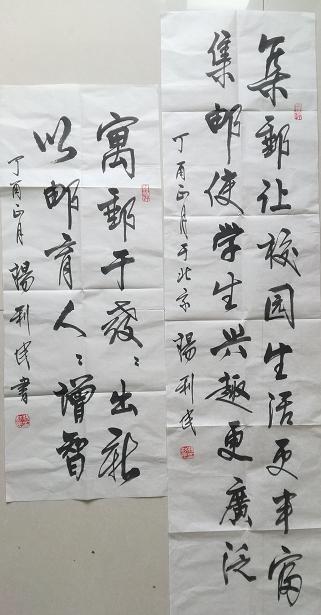 集郵让校园生活更丰富
集邮使学生兴趣更廣泛
丁酉正月于北京 楊利民
寓郵于發：出新
以邮育人：增智
丁酉正月 楊利民書